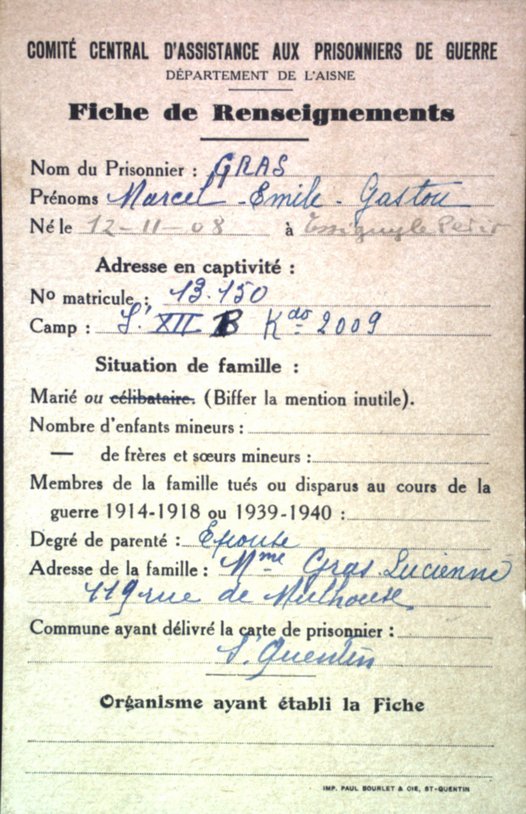 COMITÉ CENTRAL D'ASSISTANCE AUX PRISONNIERS DE GUERRE
DÉPARTEMENT DE L'AISNE
Fiche de Renseignements
Nom du Prisonnier : GRAS
Prénoms Marcel - Emile - Gaston
Né le 12-11-08 à Essigny le Petit
Adresse en captivité :
No matricule : 13.150
Camp : St XII B Kdo 2009
Situation de famille :
Marié ou célibataire. (Biffer la mention inutile).
Nombre d'enfants mineurs :
— de frères et sœurs mineurs :
Membres de la famille tués ou disparus au cours de la
guerre 1914-1918 ou 1939-1940 :
Degré de parenté : Epouse
Adresse de la famille : Mme Gras Lucienne
119 rue de Mulhouse
Commune ayant délivré la carte de prisonnier :
St Quentin
Organisme ayant établi la Fiche
IMP. PAUL BOURLET & CIE, ST-QUENTIN